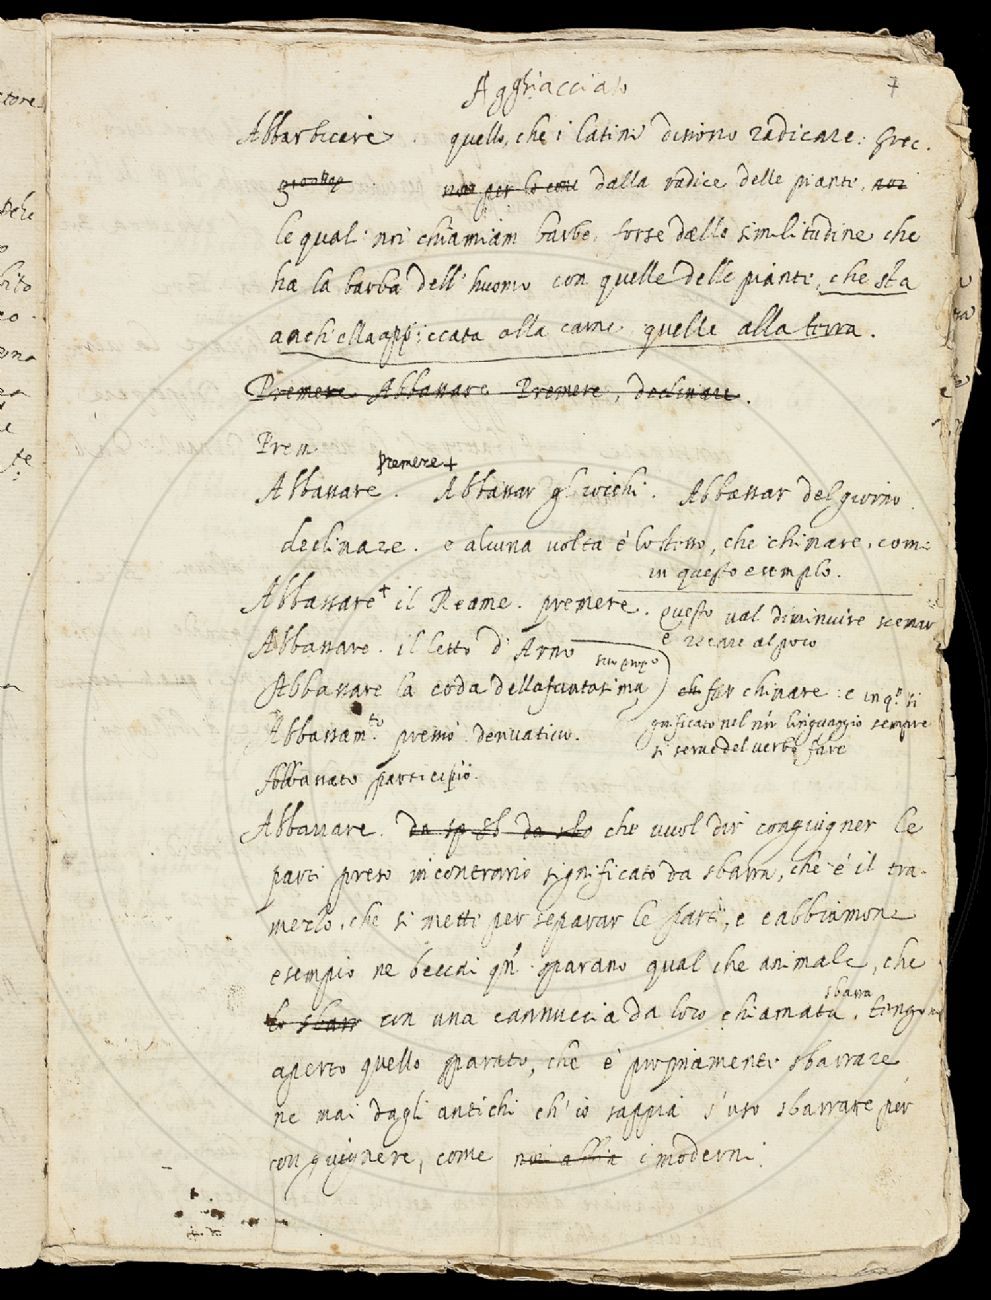 Agghiacciato
7
Abbarbicare. quello, che i latini dissono radicare: Grec.
dalla radice delle piante, noi
le quali noi chiamiam barbe, forse dalla similitudine che
ha la barba dell'huomo con quelle delle piante, che sta
anch'ella appiccata alla carne quelle alla terra.
Premere Abbassare Premere, declinare.
Prem
premere+
Abbassare. Abbassar gli occhi. Abbassar del giorno.
declinare. e alcuna volta è lo stesso, che chinare, come
in questo esemplo.
Abbassare+ il Reame. premere. questo val diminuire scemar
e recare al poco
Abbassare. il letto d'Arno
Abbassare la coda della fantasima) far chinare: e in q.o si
gnificato nel nr̃o linguaggio sempre
si serve del verbo fare
Abbassam.to derivativo.
Abbassato participio.
Abbarrare. che vuol dir congiugner le
parti preso in contrario significato da sbarra, che è il tra-
mezzo, che si mette per separar le parti, e abbiamone
esempio ne beccai qñ sparano qual che animale, che
sbarra
con una cannuccia da loro chiamata, tengono
aperto quello sparato, che è propriamente sbarrare
ne mai dagli antichi ch'io sappia s'usò sbarrare per
congiugnere, come i moderni.